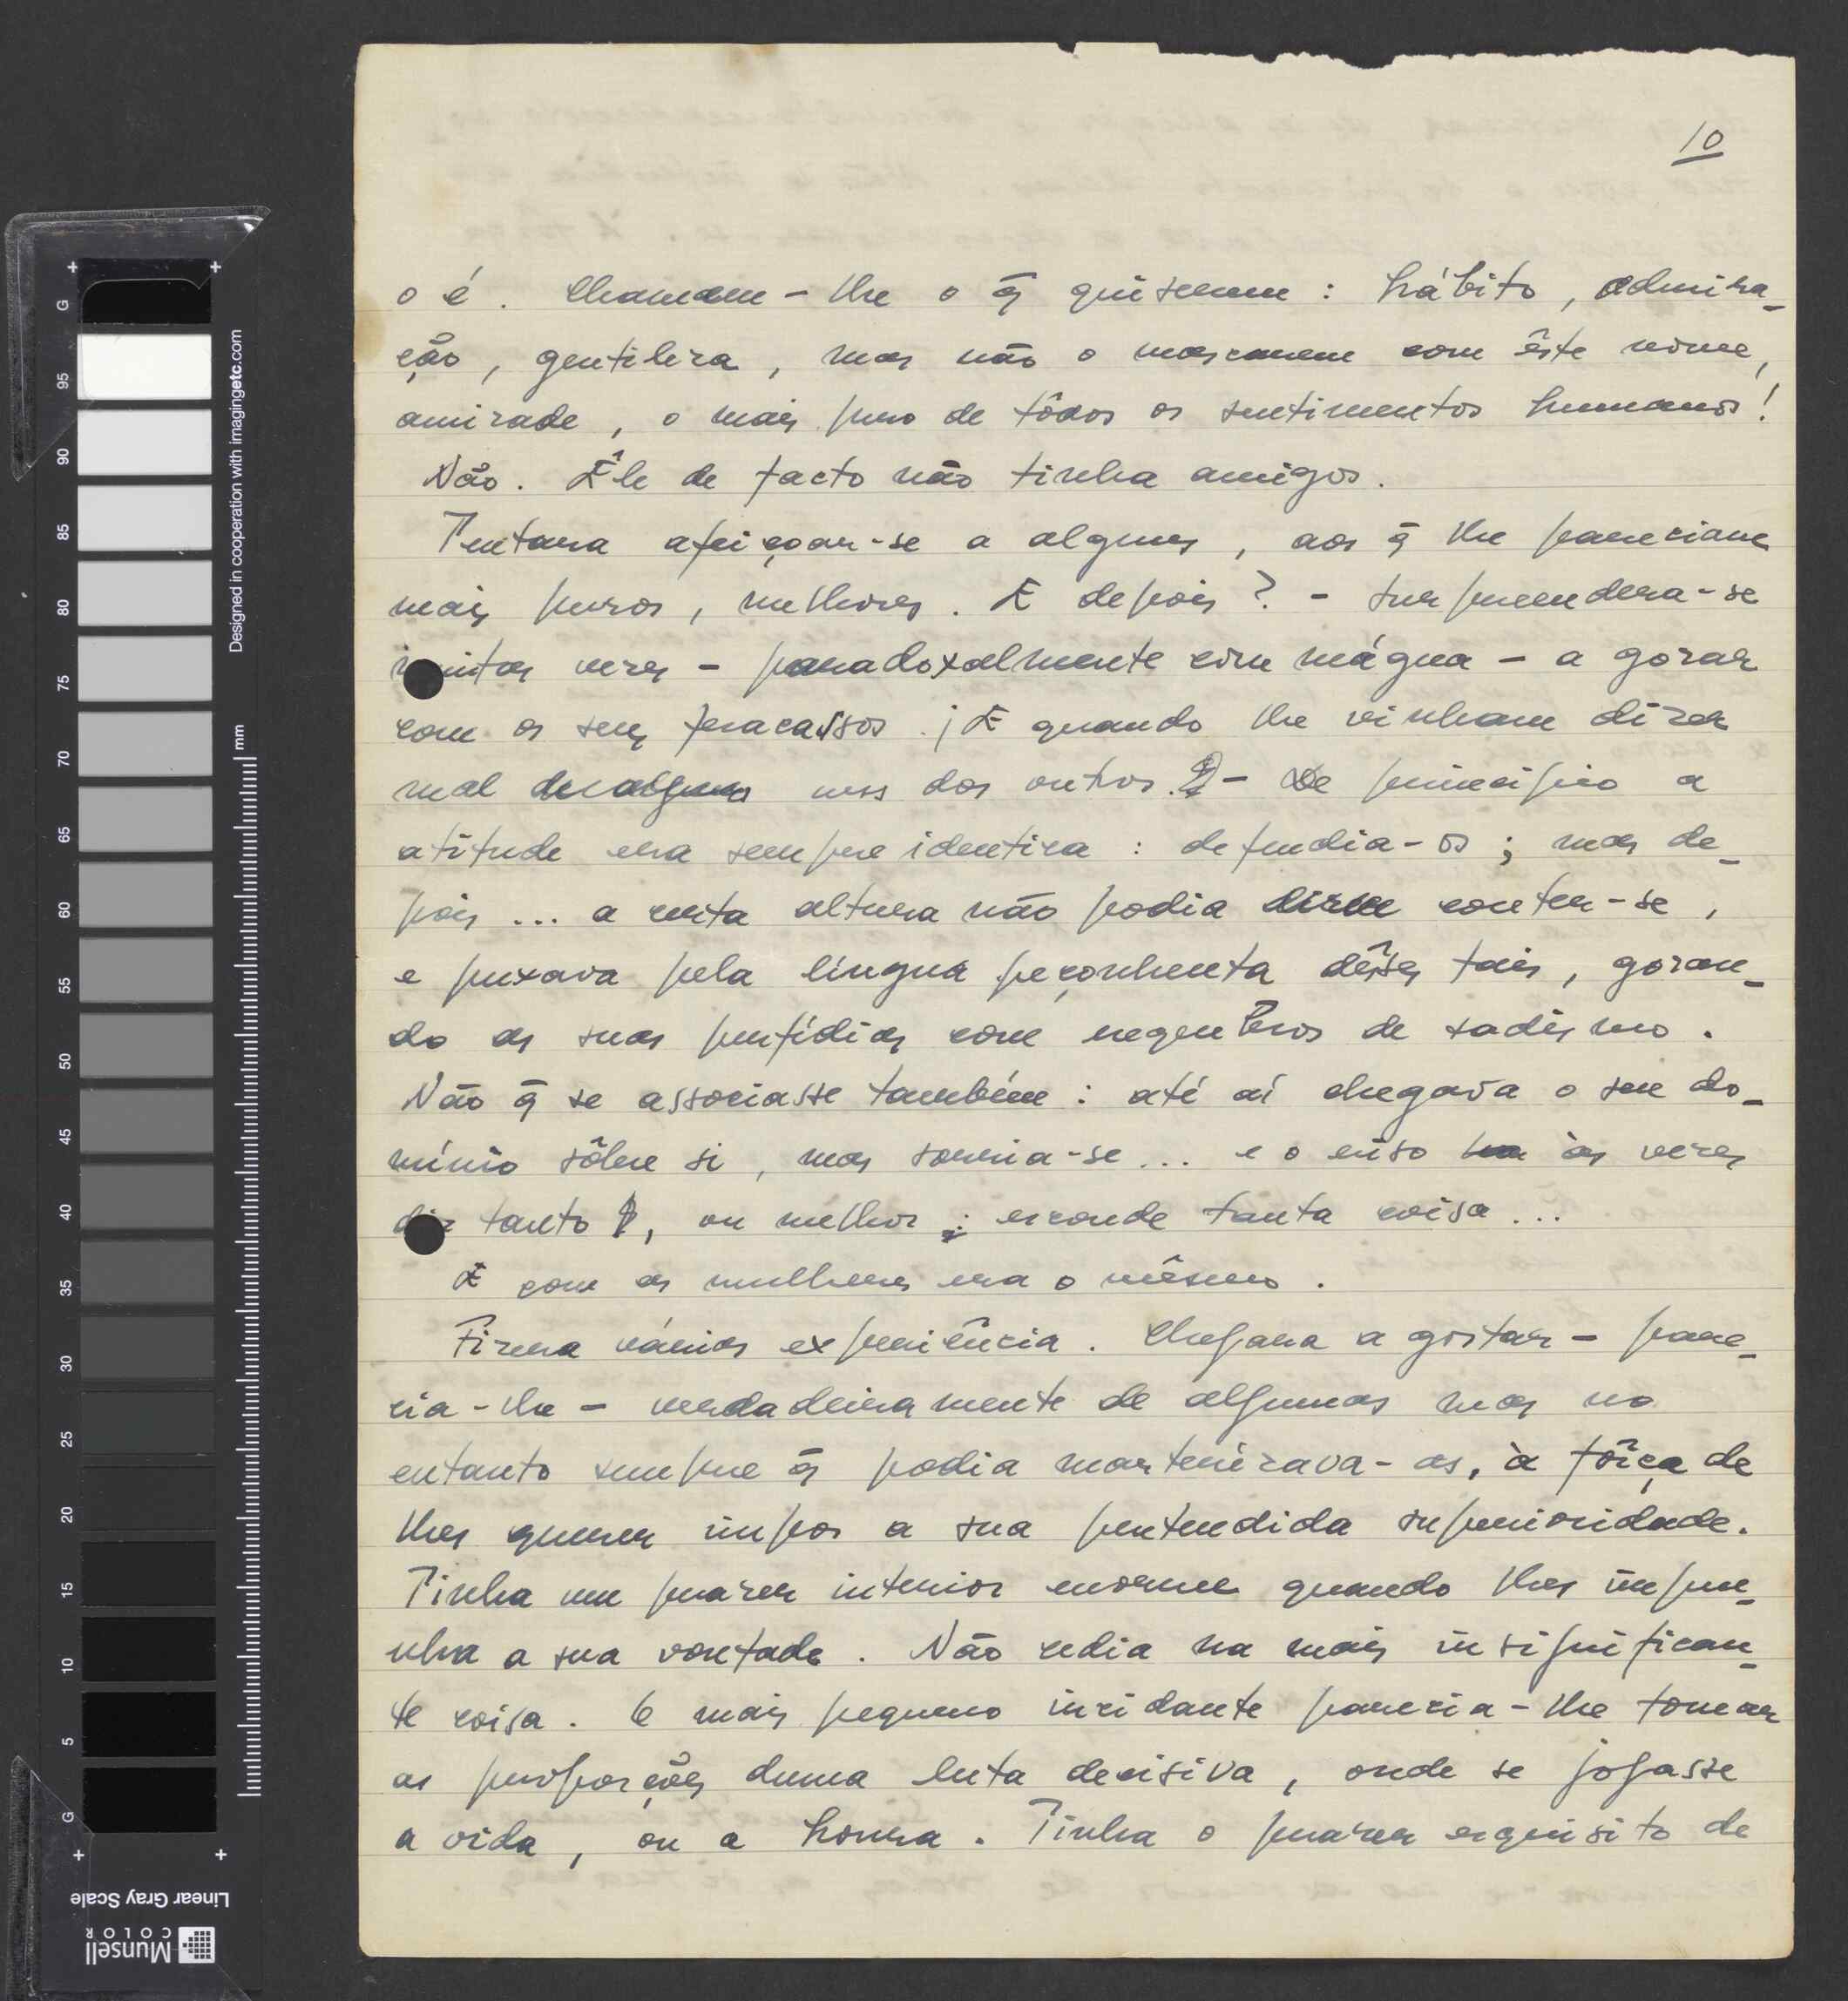 10
o é. Chamem-lhe o q̃ quiserem: hábito, admira-
ção, gentileza, mas não o mascarem com êste nome,
amizade, o mais puro de tôdos os sentimentos humanos!
Não. Êle de facto não tinha amigos.
Tentara afeiçoar-se a alguns, aos q̃ lhe pareciam
mais puros, melhores. E depois? - surpreendera-se
muitas vezes - paradoxalmente com mágua - a gozar
com os seus fracassos. ¡E quando lhe vinham dizer
mal uns dos outros? - De princípio a
atitude era sempre identica: defendia-os; mas de-
pois... a certa altura não podia conter-se,
e puxava pela língua peçonhenta dêsses tais, gozan-
do as suas perfídias com requebros de sadismo.
Não q̃ se associasse também: até aí chegava o seu do-
mínio sôbre si, mas sorria-se... e o riso às vezes
diz tanto, ou melhor: esconde tanta coisa...
E com as mulheres era o mêsmo.
Fizera várias experiência. Chegara a gostar - pare-
cia-lhe - verdadeiramente de algumas mas no
entanto sempre q̃ podia martirizava-as, à fôrça de
lhes querer impor a sua pretendida superioridade.
Tinha um prazer interior enorme quando lhes impu-
nha a sua vontade. Não cedia na mais insignifican-
te coisa. O mais pequeno incidante parecia-lhe tomar
as proporções duma luta decisiva, onde se jogasse
a vida, ou a honra. Tinha o prazer esquisito de
Designed in cooperation with imagingetc.com
mm
G
95
90
85
80
75
70
65
60
55
50
45
40
35
30
25
20
15
10
5
G
Linear Gray Scale
Munsell
COLOR